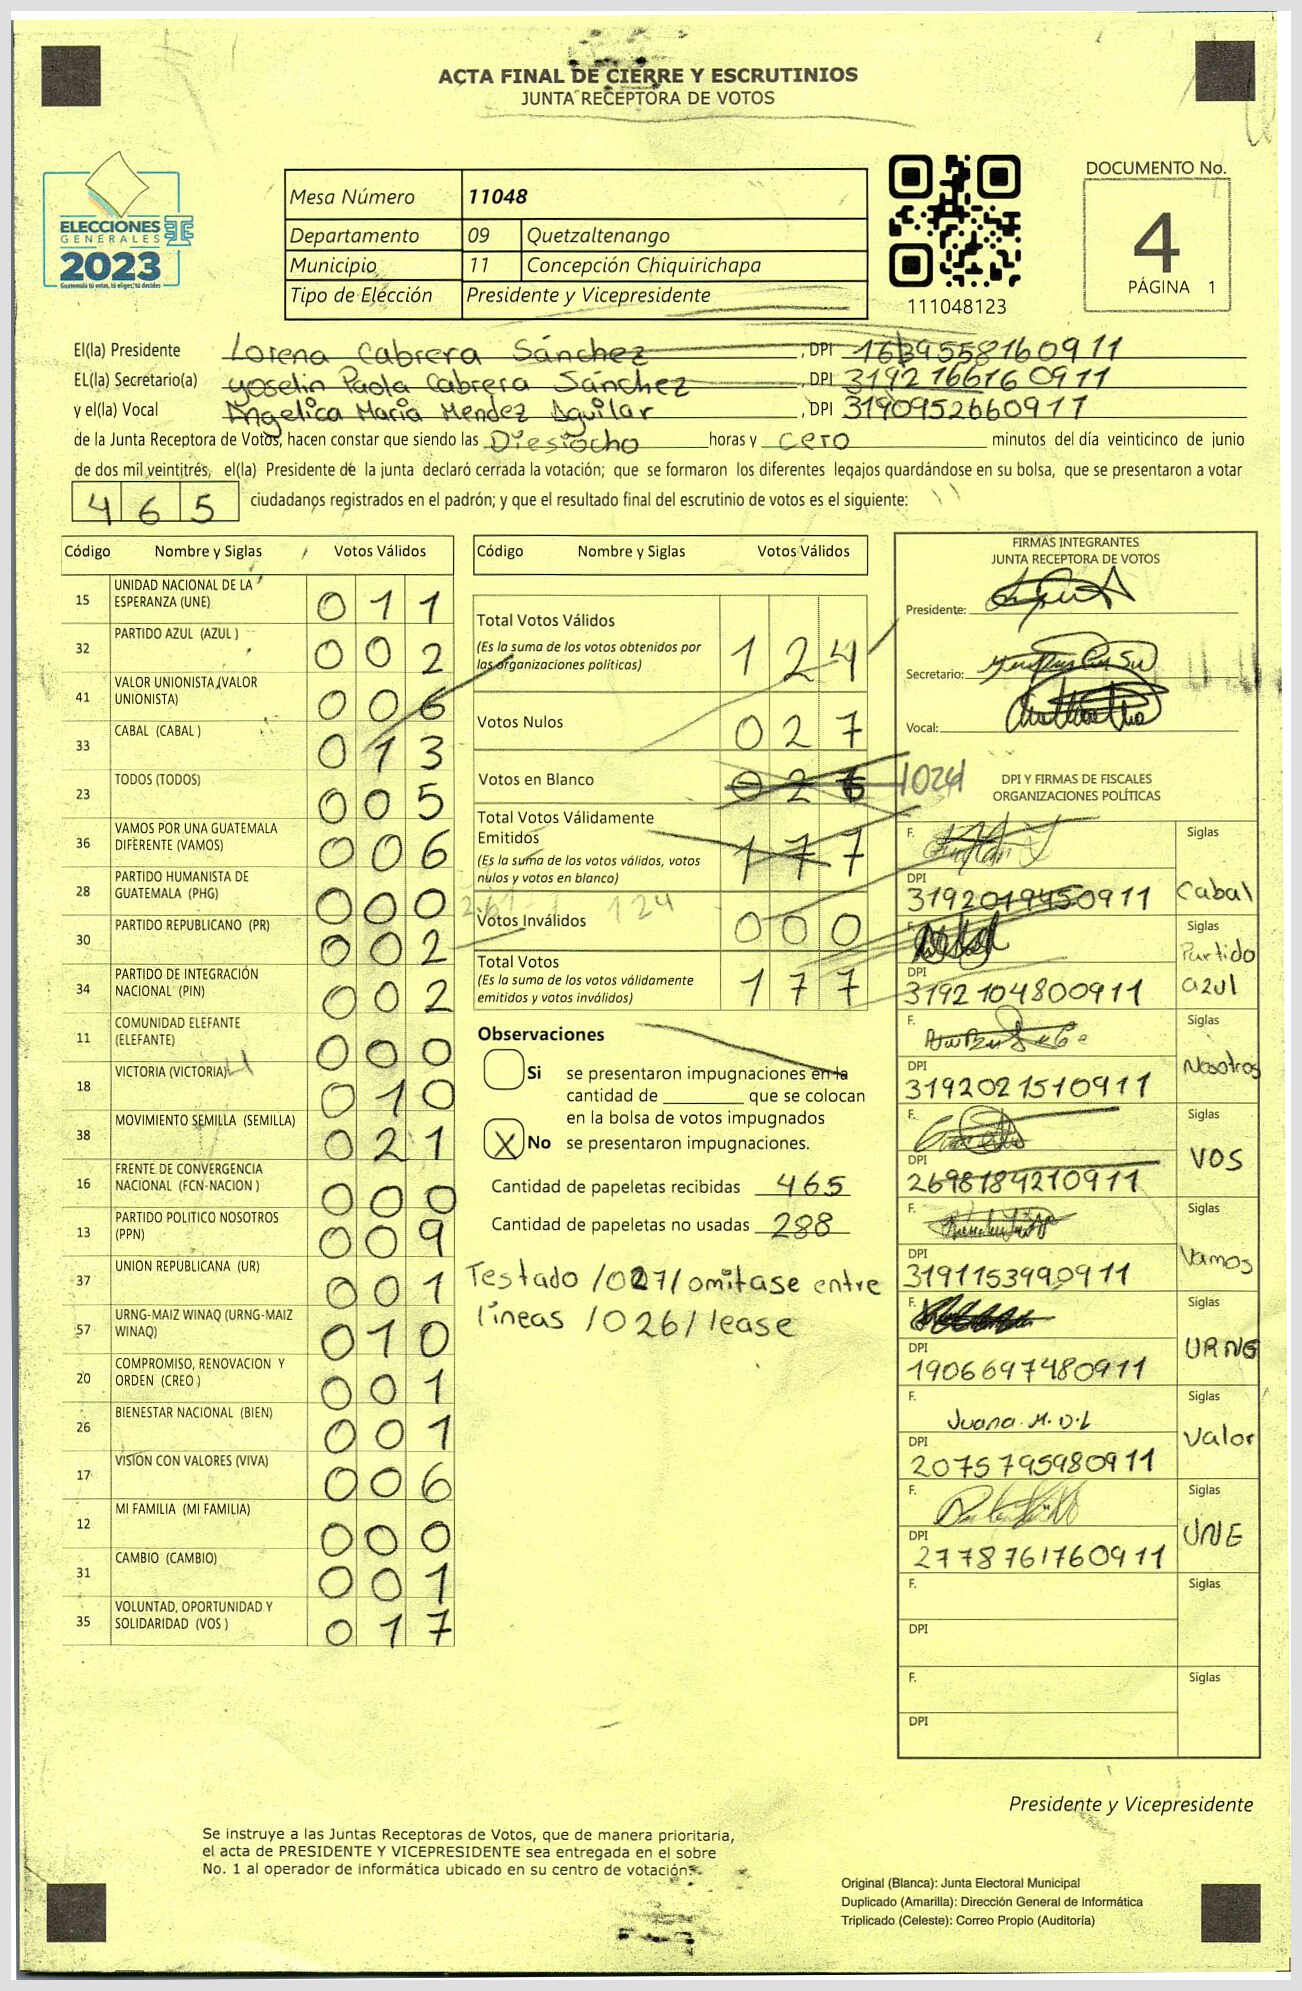 ACTA FINAL DE CIERRE Y ESCRUTINIOS
JUNTA RECEPTORA DE VOTOS
ELECCIONES
GENERALES
2023
Guatemala tú votas, tú eliges, tú decides
Mesa Número 11048
Departamento 09 Quetzaltenango
Municipio 11 Concepción Chiquirichapa
Tipo de Elección Presidente y Vicepresidente
111048123
DOCUMENTO No.
4
PÁGINA 1
El(la) Presidente Lorena Cabrera Sánchez, DPI
EL(la) Secretario(a) yoselin Paola Cabrera Sánchez, DPI 3192166160911
y el(la) Vocal Angelica Maria Mendez Aguilar, DPI 3190952660911
de la Junta Receptora de Votos, hacen constar que siendo las Diesiocho horas y cero minutos del día veinticinco de junio
de dos mil veintitrés, el(la) Presidente de la junta declaró cerrada la votación; que se formaron los diferentes legajos guardándose en su bolsa, que se presentaron a votar
465 ciudadanos registrados en el padrón; y que el resultado final del escrutinio de votos es el siguiente:
Código Nombre y Siglas Votos Válidos
15 UNIDAD NACIONAL DE LA ESPERANZA (UNE) 011
32 PARTIDO AZUL (AZUL ) 002
41 VALOR UNIONISTA (VALOR UNIONISTA) 006
33 CABAL (CABAL ) 013
23 TODOS (TODOS) 005
36 VAMOS POR UNA GUATEMALA DIFERENTE (VAMOS) 006
28 PARTIDO HUMANISTA DE GUATEMALA (PHG) 000
30 PARTIDO REPUBLICANO (PR) 002
34 PARTIDO DE INTEGRACIÓN NACIONAL (PIN) 002
11 COMUNIDAD ELEFANTE (ELEFANTE) 000
18 VICTORIA (VICTORIA) 010
38 MOVIMIENTO SEMILLA (SEMILLA) 021
16 FRENTE DE CONVERGENCIA NACIONAL (FCN-NACION ) 000
13 PARTIDO POLITICO NOSOTROS (PPN) 009
37 UNION REPUBLICANA (UR) 001
57 URNG-MAIZ WINAQ (URNG-MAIZ WINAQ) 010
20 COMPROMISO, RENOVACION Y ORDEN (CREO ) 001
26 BIENESTAR NACIONAL (BIEN) 001
17 VISION CON VALORES (VIVA) 006
12 MI FAMILIA (MI FAMILIA) 000
31 CAMBIO (CAMBIO) 001
35 VOLUNTAD, OPORTUNIDAD Y SOLIDARIDAD (VOS ) 017
Código Nombre y Siglas Votos Válidos
Total Votos Válidos 124
(Es la suma de los votos obtenidos por
las organizaciones políticas)
Votos Nulos 027
Votos en Blanco
Total Votos Válidamente
Emitidos 177
(Es la suma de los votos válidos, votos
nulos y votos en blanco)
124
Votos Inválidos 000
Total Votos 177
(Es la suma de los votos válidamente
emitidos y votos inválidos)
Observaciones
Si se presentaron impugnaciones en la
cantidad de ________ que se colocan
en la bolsa de votos impugnados
X No se presentaron impugnaciones.
Cantidad de papeletas recibidas 465
Cantidad de papeletas no usadas 288
Testado /027/ omitase entre
líneas /026/ lease
FIRMAS INTEGRANTES
JUNTA RECEPTORA DE VOTOS
Presidente:
Secretario:
Vocal:
DPI Y FIRMAS DE FISCALES
ORGANIZACIONES POLÍTICAS
F. Siglas
DPI
3192019450911 Cabal
F. Siglas
Partido
DPI azul
3192104800911
F. Siglas
DPI Nosotros
3192021510911
F. Siglas
DPI VOS
2698184210911
F. Siglas
DPI Vamos
3191153990911
F. Siglas
DPI URNG
1906697480911
F. Siglas
Juana M. D.L
DPI Valor
2075795980911
F. Siglas
DPI UNE
2778761760911
F. Siglas
DPI
F. Siglas
DPI
Presidente y Vicepresidente
Se instruye a las Juntas Receptoras de Votos, que de manera prioritaria,
el acta de PRESIDENTE Y VICEPRESIDENTE sea entregada en el sobre
No. 1 al operador de informática ubicado en su centro de votación.
Original (Blanca): Junta Electoral Municipal
Duplicado (Amarilla): Dirección General de Informática
Triplicado (Celeste): Correo Propio (Auditoría)